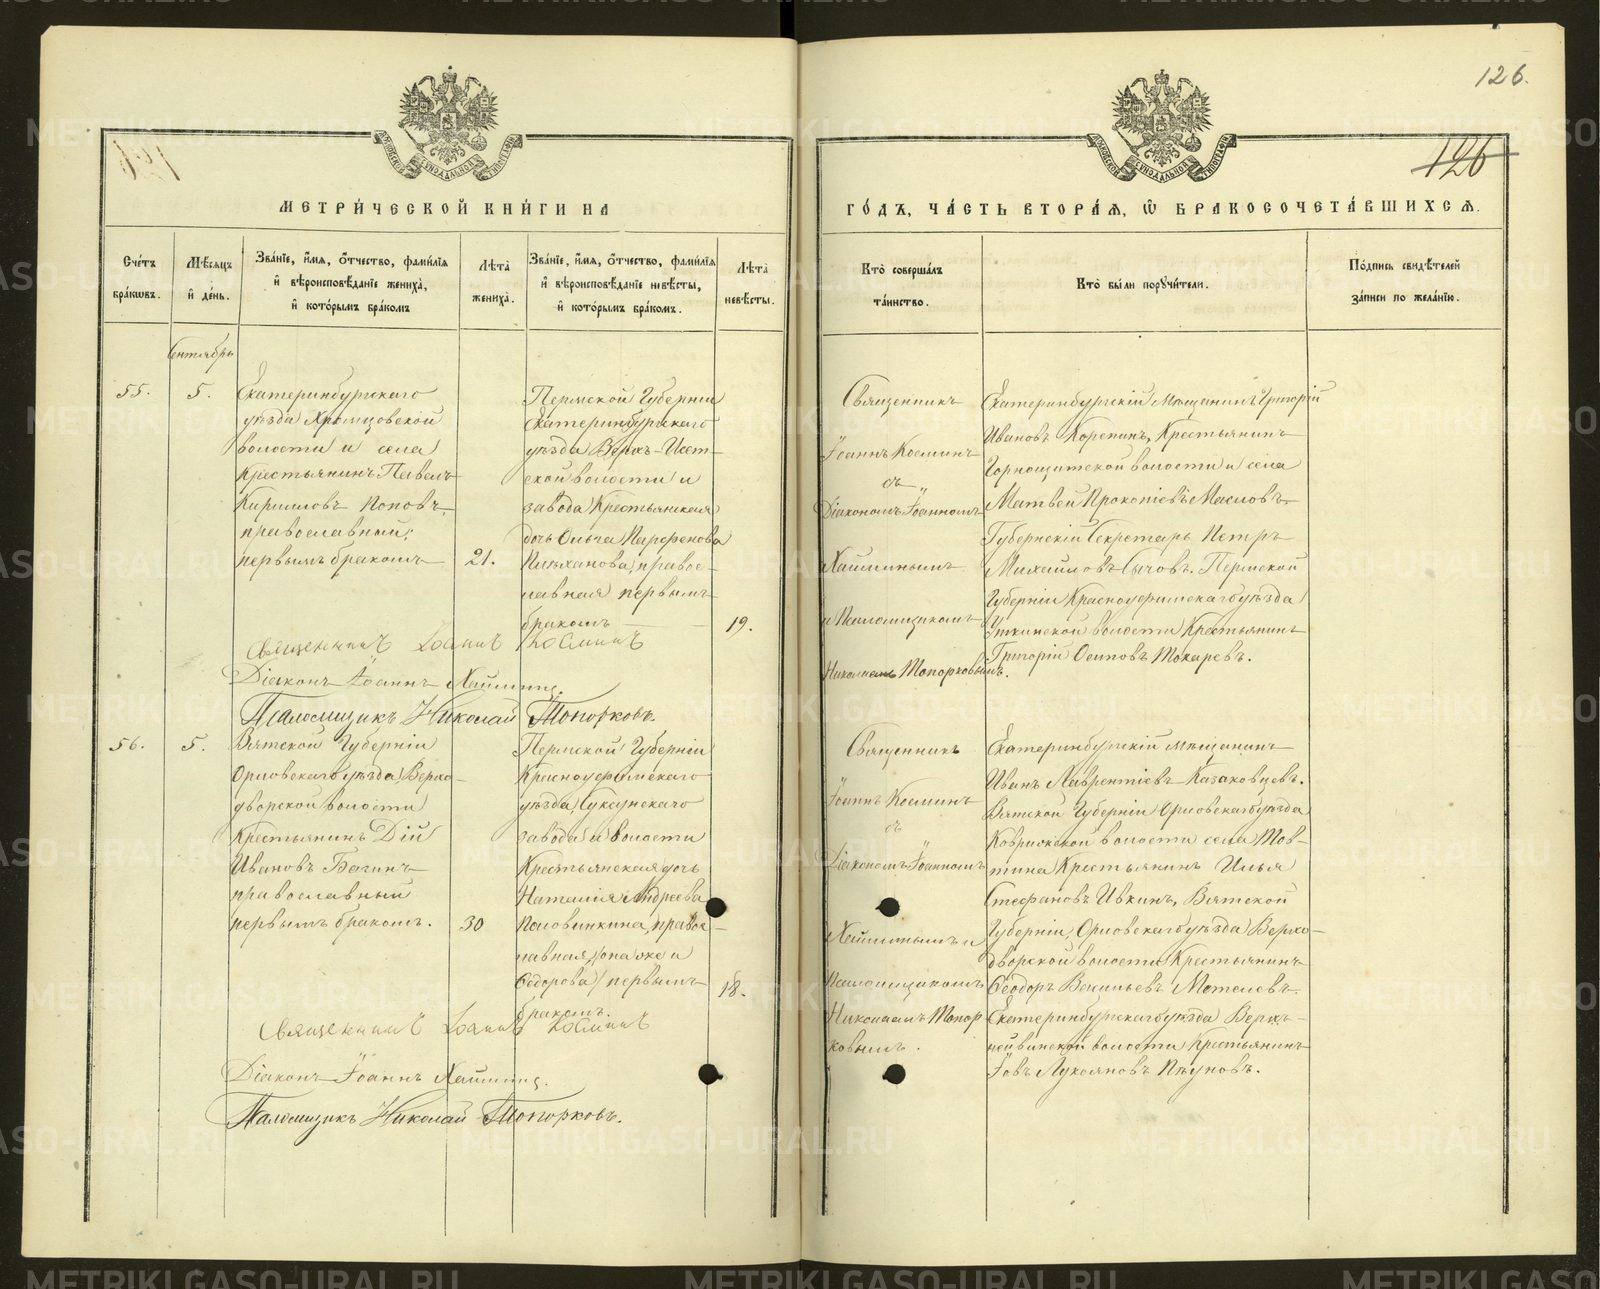 126.
126
МЕТРИ́ЧЕСКОЙ КНИ́ГИ НА
ГО́ДЪ, ЧА́СТЬ ВТОРА́Я, Ѿ БРАКОСОЧЕТА́ВШИХСЯ.
Сче́тъ бра́кѡвъ.
Мѣ́сяцъ и҆ де́нь.
Зва́нїе, и҆́мѧ, ѻ҆́тчество, фами́лїѧ
и҆ вѣроисповѣ́данїе жениха̀,
и҆ кото́рымъ бра́комъ
Лѣта̀ жениха̀.
Зва́нїе, и҆́мѧ, ѻ҆́тчество, фами́лїѧ
и҆ вѣроисповѣ́данїе невѣ́сты,
и҆ кото́рымъ бра́комъ.
Лѣта̀ невѣ́сты.
Кто̀ соверша́лъ
та́инство.
Кто̀ бы́ли порꙋчи́тели.
По́дпись свидѣ́телей
за́писи по жела́нїю.
Сентябрь
55.
5.
Екатеринбургскаго
уѣзда Хромцовской
волости и села
Крестьянинъ Павелъ
Кириловъ Поповъ,
православный,
первымъ бракомъ
21.
Пермской Губерніи
Екатеринбургскаго
уѣзда Верхъ-Исет-
ской волости и
завода Крестьянская
дочь Ольга Парфенова
Плеханова, правос-
лавная первымъ
бракомъ
19.
Священникъ
Іоаннъ Косминъ
съ
Діакономъ Іоанномъ
Хайминымъ
и Псаломщикомъ
Николаемъ Топорковымъ.
Екатеринбургскій Мѣщанинъ Григорій
Ивановъ Корепинъ, Крестьянинъ
Горнощитской волости и села
Матвей Прокопіевъ Масловъ.
Губернскій Секретарь Петръ
Михаиловъ Сычовъ. Пермской
Губерніи Красноуфимскаго уѣзда
Уткинской волости Крестьянинъ
Григорій Осиповъ Токаревъ.
Священникъ Іоаннъ Косминъ
Діаконъ Іоаннъ Хайминъ.
Псаломщикъ Николай Топорковъ.
56.
5.
Вятской Губерніи
Орловскаго уѣзда Верхо-
дворской волости
Крестьянинъ Дій
Ивановъ Багинъ
православный
первымъ бракомъ.
30
Пермской Губерніи
Красноуфимскаго
уѣзда, Суксунскаго
завода и волости
Крестьянская дочь
Наталія Андреева
Половинкина, правос-
лавная, (она же и
Федорова) первымъ
бракомъ.
18.
Священникъ
Іоаннъ Косминъ
съ
Діакономъ Іоанномъ
Хайминымъ и
Псаломщикомъ
Николаемъ Топор
ковымъ.
Екатеринбургскій мѣщанинъ
Иванъ Лаврентіевъ Казаковцевъ.
Вятской Губерніи Орловскаго уѣзда
волости села Тов-
тина Крестьянинъ Илья
Стефановъ Ивкинъ, Вятской
Губерніи, Орловскаго уѣзда Верхо-
дворской волости Крестьянинъ
Феодоръ Васильевъ
Екатеринбургскаго уѣзда Верхъ-
нейвинской волости Крестьянинъ
Іовъ Лукояновъ Пѣуновъ.
Священникъ Іоаннъ Косминъ
Діаконъ Іоаннъ Хайминъ.
Псаломщикъ Николай Топорковъ.
METRIKI.GASO-URAL.RU